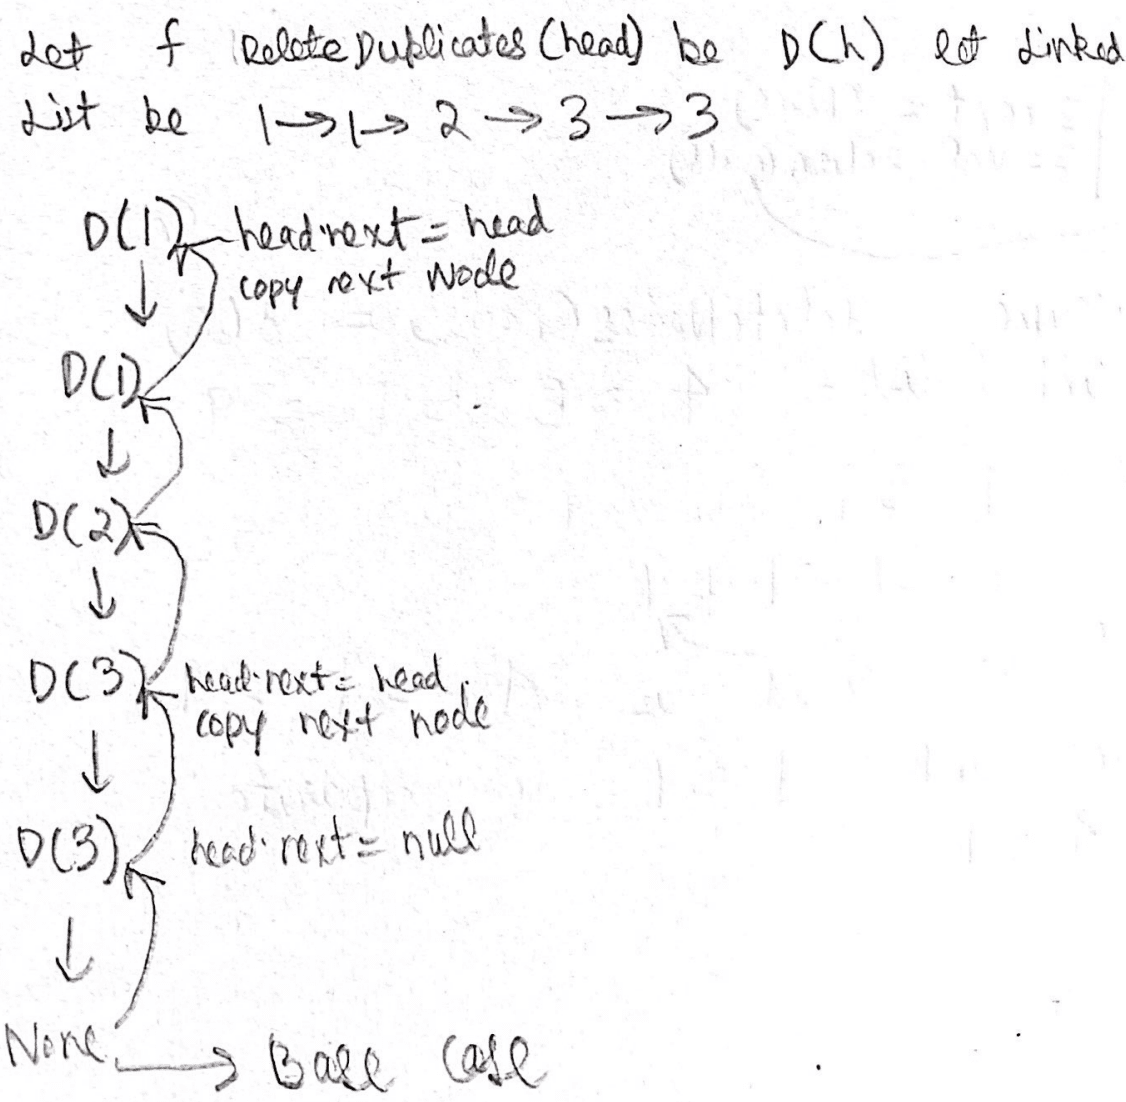 Let f DeleteDuplicates (head) be D(h) let Linked
List be 1→1→ 2 → 3 → 3
D(1) head.next = head
copy next Node
↓
D(1)
↓
D(2)
↓
D(3) head.next = head.
copy next node
↓
D(3) head.next = null
↓
None → Base Case